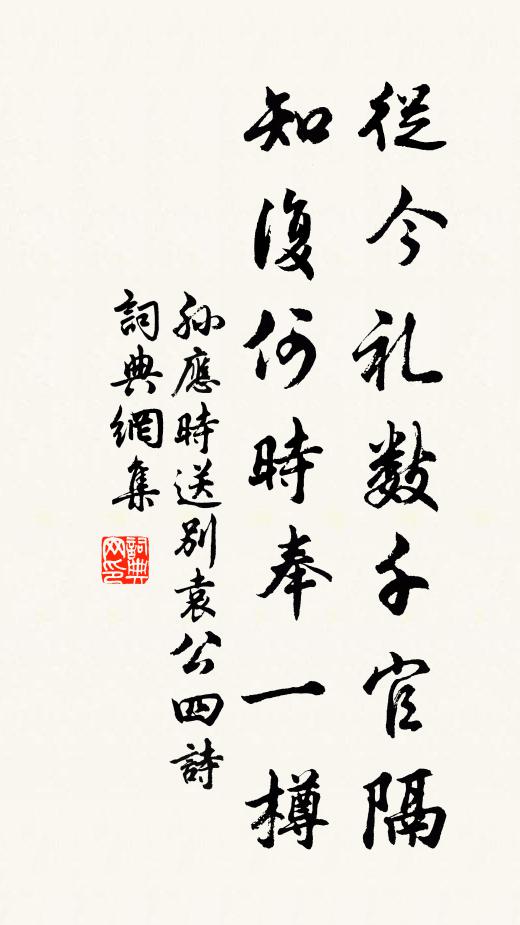 從今礼數千官隔
知復何時奉一樽
孫應時送別袁公四詩
詞典網集
詞典
网印